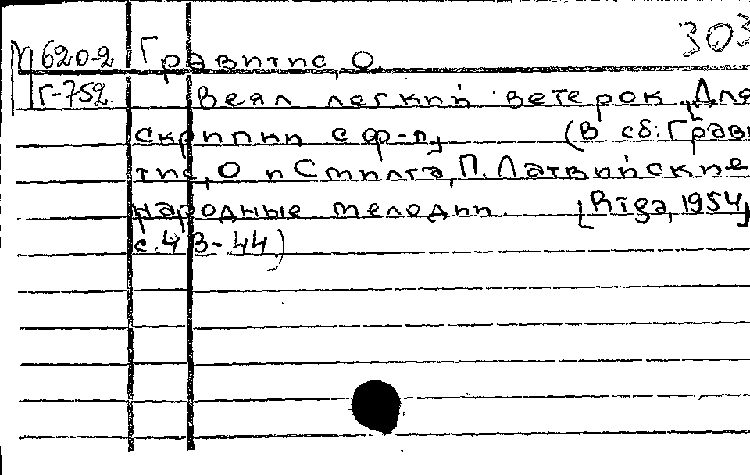 303
М 620-2 Гравитис, О.
Г-752 Веял легкий ветерок. Для
скрипки с ф-п,
(В сб: Грави
тис, О и Стилта, П. Латвийские
народные мелодии. [Riga, 1954,
с. 43-44)